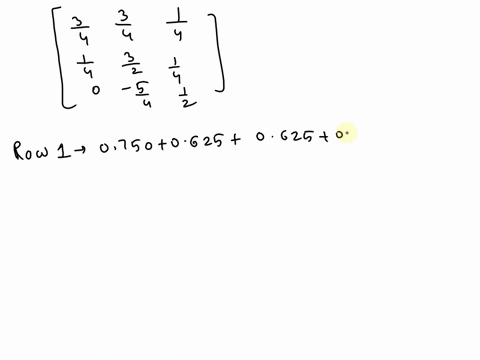 3/4 3/4 1/4
1/4 3/2 1/4
0 -5/4 1/2
Row 1→ 0.750+0.625+ 0.625+0.